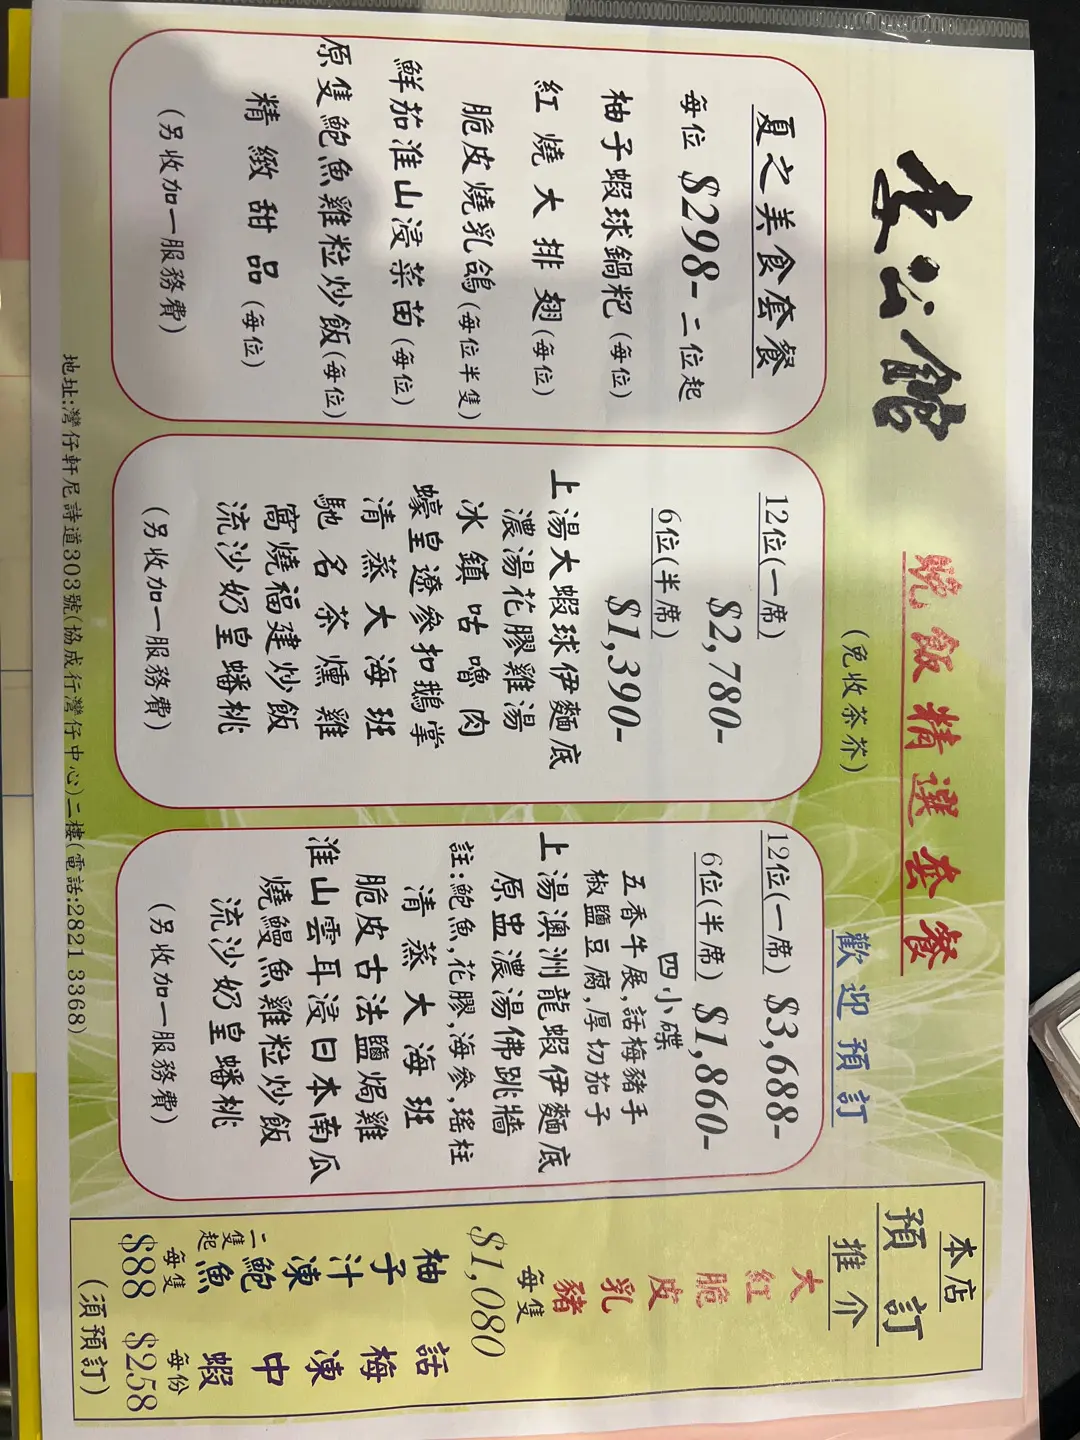 公館
晚飯精選套餐
(免收茶芥)
歡迎預訂
夏之美食套餐
每位 $298- 二位起
柚子蝦球鍋粑(每位)
紅燒大排翅(每位)
脆皮燒乳鴿(每位半隻)
鮮茄淮山浸菜苗(每位)
原隻鮑魚雞粒炒飯(每位)
精緻甜品(每位)
(另收加一服務費)
12位(一席)
$2,780-
6位(半席)
$1,390-
上湯大蝦球伊麵底
濃湯花膠雞湯
冰鎮咕嚕肉
蠔皇遼參扣鵝掌
清蒸大海班
馳名茶燻雞
窩燒福建炒飯
流沙奶皇蟠桃
(另收加一服務費)
12位(一席) $3,688-
6位(半席) $1,860-
四小碟
五香牛展,話梅豬手
椒鹽豆腐,厚切茄子
上湯澳洲龍蝦伊麵底
原盅濃湯佛跳牆
註:鮑魚,花膠,海參,瑤柱
清蒸大海班
脆皮古法鹽焗雞
淮山雲耳浸日本南瓜
燒鰻魚雞粒炒飯
流沙奶皇蟠桃
(另收加一服務費)
本店
預訂
推介
大紅脆皮乳豬
每隻
$1,080
柚子汁凍鮑魚
二隻起
每隻
$88
話梅凍中蝦
每份
$258
(須預訂)
地址:灣仔軒尼詩道303號(協成行灣仔中心)二樓(電話:2821 3368)